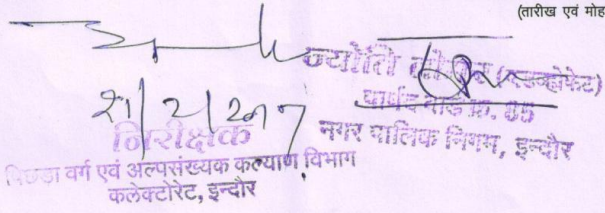 (तारीख एवं मोह
ज्योति (एडव्होकेट)
पार्षद वार्ड क्र. 65
नगर पालिक निगम, इन्दौर
निरीक्षक
पिछड़ा वर्ग एवं अल्पसंख्यक कल्याण विभाग
कलेक्टोरेट, इन्दौर